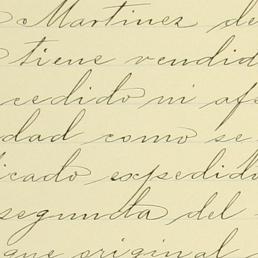 Martinez de
tiene vendid
cedido ni afe
dad como se
icado expedido
segunda del
que original